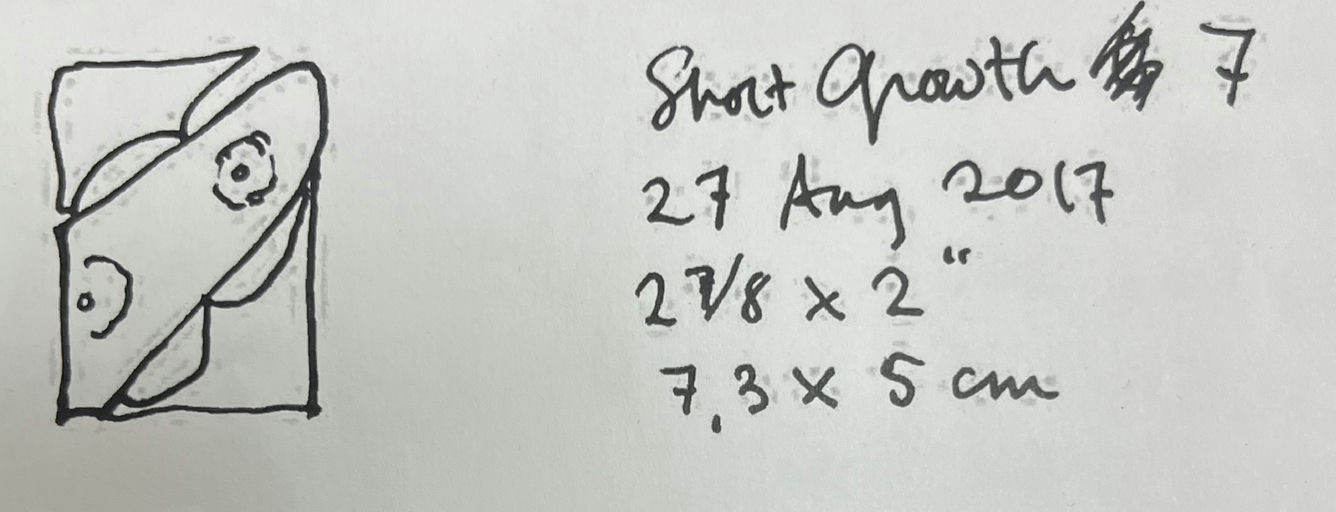 Short Growth 7
27 Aug 2017
2 7/8 x 2"
7.3 x 5 cm